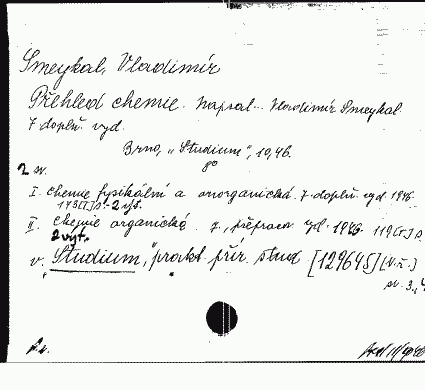 Smeykal, Vladimír
Přehled chemie. Napsal.. Vladimír Smeykal.
7. doplň. vyd.
Brno, „Studium", 1946.
8°
2 sv.
I. Chemie fysikální a anorganická. 7. doplň. vyd. 1946.
173 [I] s. - 2 výt.
II. Chemie organická. 7. přepracov. vyd. 1946. 119 [5] s.
2 výt.
v. „Studium", prakt. přír. stud. [129645] (N.ř.)
sv. 3.,